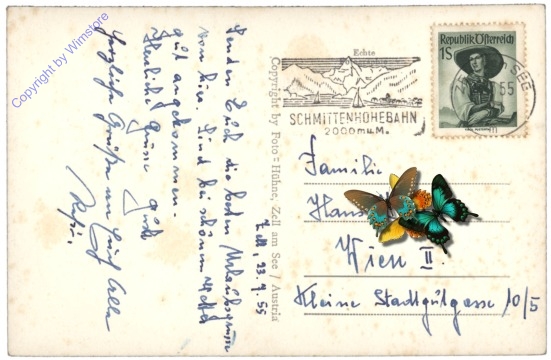 Zell, 23.9.55
Senden Euch die besten Urlaubsgrüsse
von hier. Sind bei schönem Wetter
gut angekommen.
Herzliche Grüsse
Herzliche Grüße an Euch Alle
Copyright by Foto-Hühne, Zell am See / Austria
Echte
SCHMITTENHÖHEBAHN
2000m ü.M.
Republik Österreich
1S
SEE
55
Familie
Hans
Wien II.
Kleine Stadtgutgasse 10/5
Copyright by Wimstore